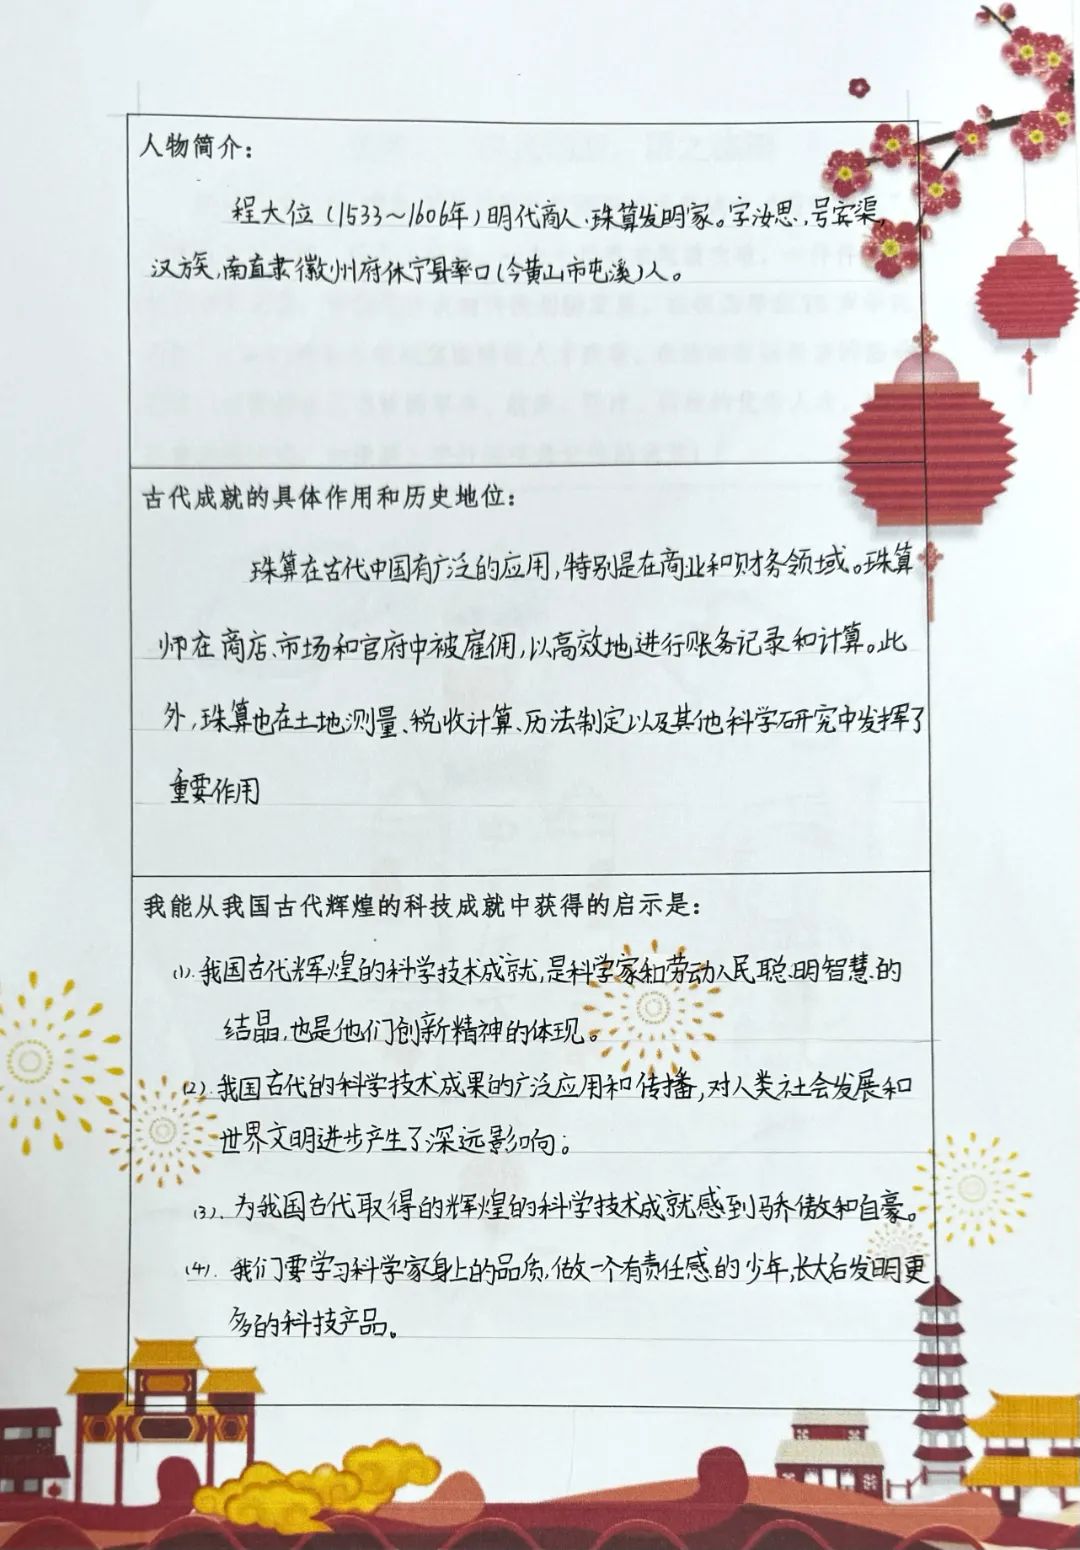 人物简介：
程大位（1533～1606年）明代商人、珠算发明家。字汝思，号宾渠，
汉族，南直隶徽州府休宁县率口（今黄山市屯溪）人。
古代成就的具体作用和历史地位：
珠算在古代中国有广泛的应用，特别是在商业和财务领域。珠算
师在商店、市场和官府中被雇佣，以高效地进行账务记录和计算。此
外，珠算也在土地测量、税收计算、历法制定以及其他科学研究中发挥了
重要作用
我能从我国古代辉煌的科技成就中获得的启示是：
(1).我国古代辉煌的科学技术成就，是科学家和劳动人民聪明智慧的
结晶，也是他们创新精神的体现。
(2).我国古代的科学技术成果的广泛应用和传播，对人类社会发展和
世界文明进步产生了深远影响；
(3)、为我国古代取得的辉煌的科学技术成就感到骄傲和自豪。
(4).我们要学习科学家身上的品质，做一个有责任感的少年，长大后发明更
多的科技产品。